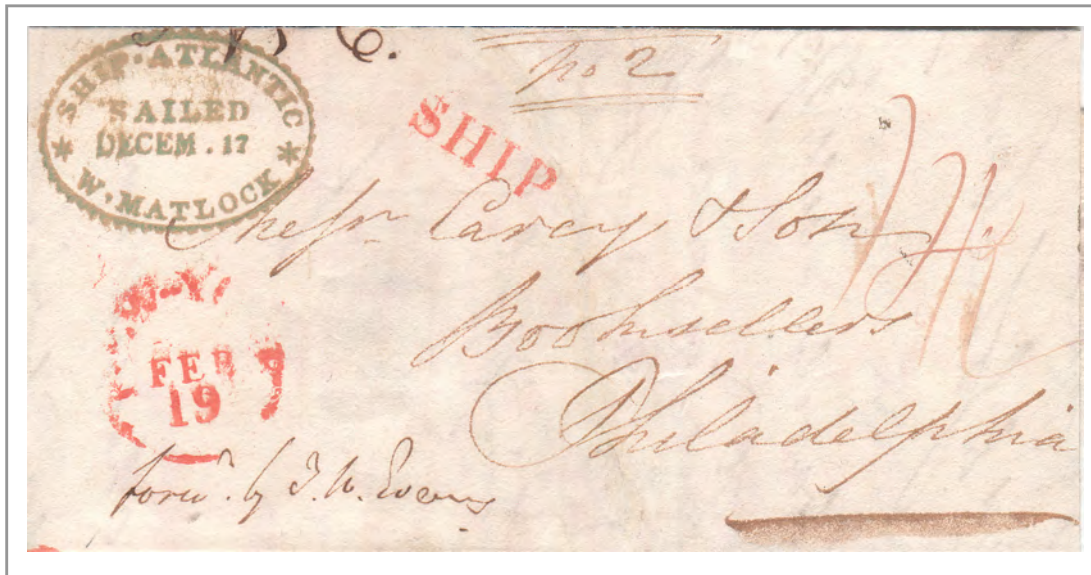 SHIP·ATLANTIC
SAILED
DECEM. 17
* W. MATLOCK *
No 2
SHIP
Messrs Carey & Son
Booksellers
Philadelphia
FEB
19
forwd. by J. W. Evans